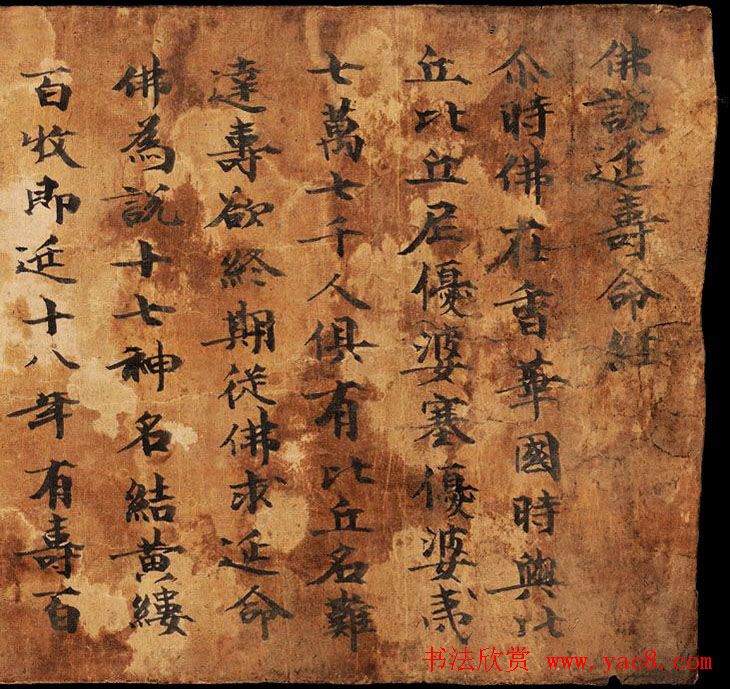 佛説延壽命經
尒時佛在香華國時與比
丘比丘尼優婆塞優婆夷
七萬七千人俱有比丘名難
達壽欲終期従佛求延命
佛為説十七神名結黄縷
百收即延十八年有壽百
书法欣赏 www.yac8.com